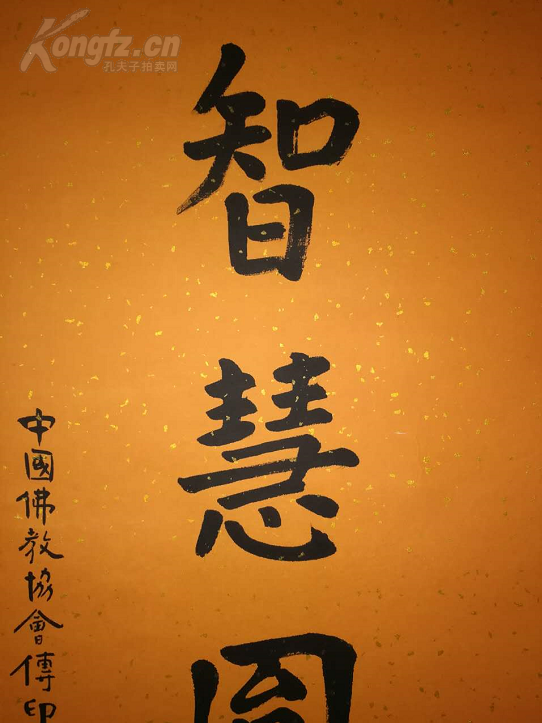 Kongfz.cn
孔夫子拍卖网
智慧
中國佛教協會傳印